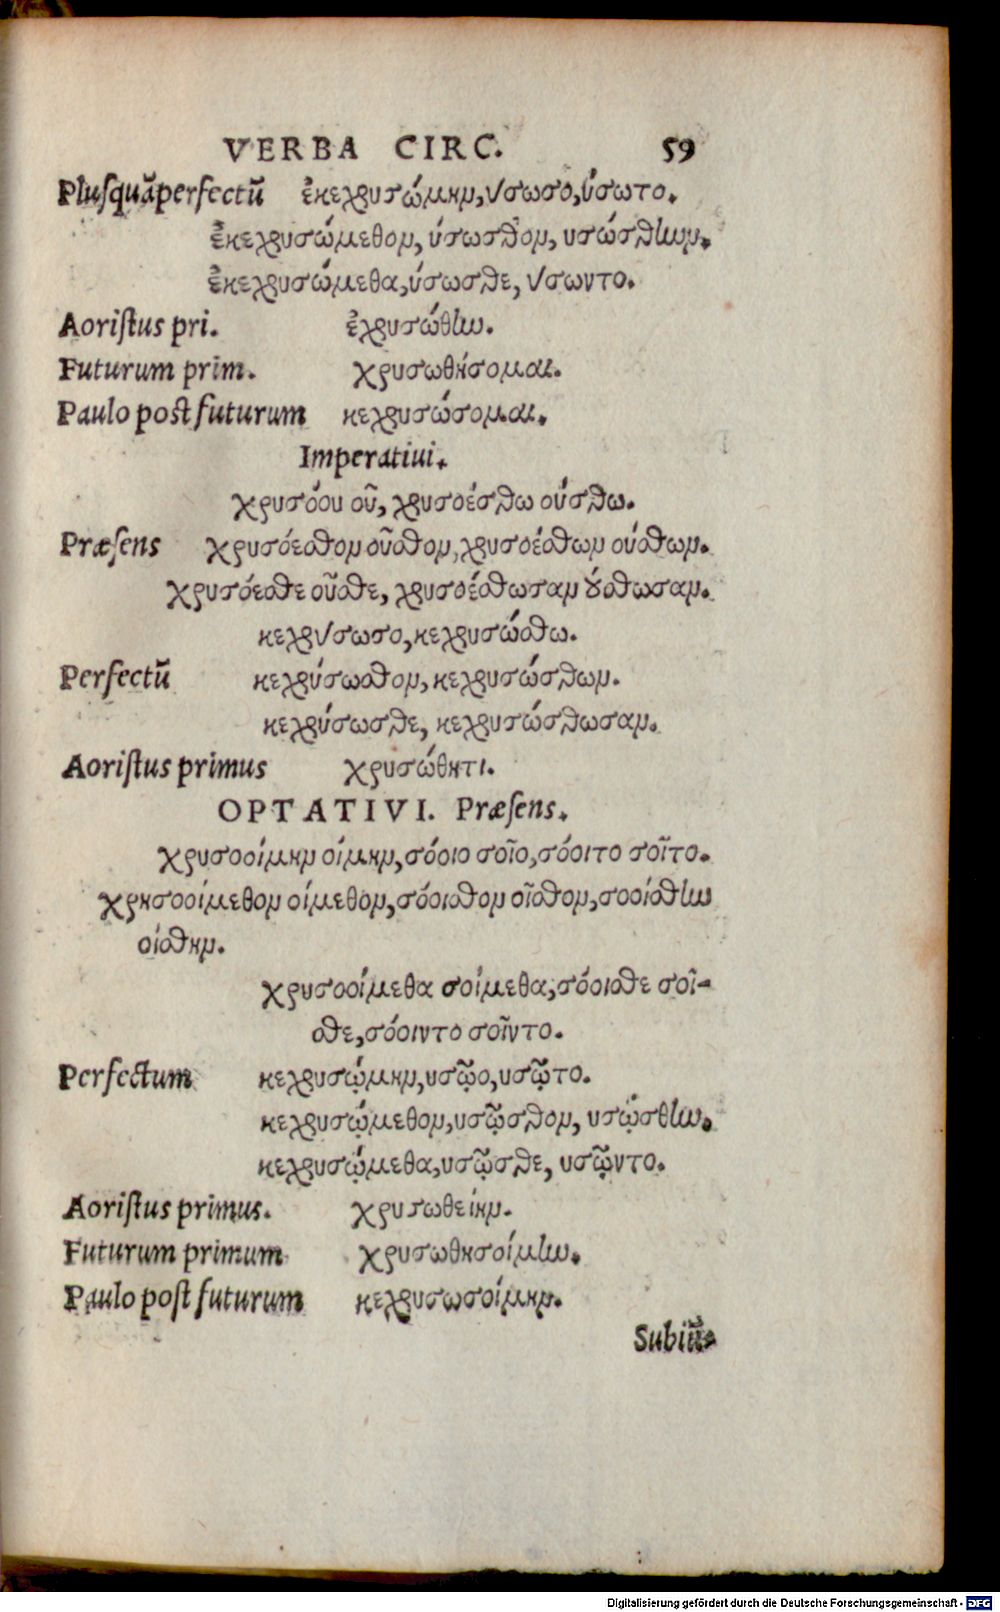 VERBA CIRC. 59
Plusquā̃perfectũ ἐκεχρυσώμην, ύσωσο, ύσωτο.
ἐκεχρυσώμεθον, ύσωσθον, υσώσθην.
ἐκεχρυσώμεθα, ύσωσθε, ύσωντο.
Aoristus pri. ἐχρυσώθην.
Futurum prim. χρυσωθήσομαι.
Paulo post futurum κεχρυσώσομαι.
Imperatiui.
χρυσόου οῦ, χρυσοέσθω ούσθω.
Præsens χρυσόεσθον οῦσθον, χρυσοέσθων ούσθων.
χρυσόεσθε οῦσθε, χρυσοέσθωσαν ούσθωσαν.
κεχρύσωσο, κεχρυσώσθω.
Perfectũ κεχρύσωσθον, κεχρυσώσθων.
κεχρύσωσθε, κεχρυσώσθωσαν.
Aoristus primus χρυσώθητι.
OPTATIVI. Præsens.
χρυσοοίμην οίμην, σόοιο σοῖο, σόοιτο σοῖτο.
χρησοοίμεθον οίμεθον, σόοισθον οῖσθον, σοοίσθην
οίσθην.
χρυσοοίμεθα σοίμεθα, σόοισθε σοῖ-
σθε, σόοιντο σοῖντο.
Perfectum κεχρυσῴμην, υσῷο, υσῷτο.
κεχρυσῴμεθον, υσῷσθον, υσῴσθην.
κεχρυσῴμεθα, υσῷσθε, υσῷντο.
Aoristus primus. χρυσωθείην.
Futurum primum χρυσωθησοίμην.
Paulo post futurum κεχρυσωσοίμην.
Subiũ-
Digitalisierung gefördert durch die Deutsche Forschungsgemeinschaft - DFG